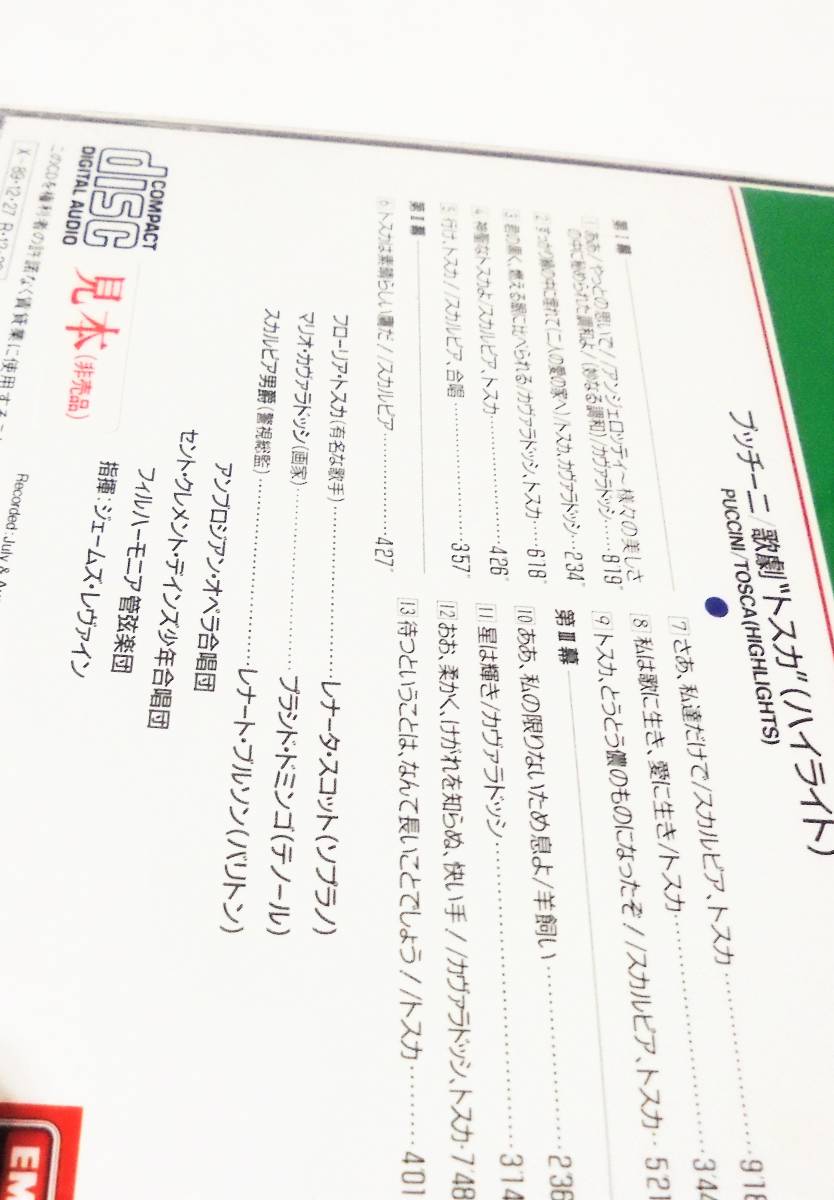 プッチーニ/歌劇“トスカ”(ハイライト)
PUCCINI/TOSCA(HIGHLIGHTS)
第Ⅰ幕
1 ああ/やっとの思いで/(アンジェロッティ〜様々の美しさ
の中に秘められた調和よ/(妙なる調和)/カヴァラドッシ……819"
2 すっかり緑の中に埋れて(二人の愛の家へ)トスカ,カヴァラドッシ…234"
3 君の黒く、燃える眼にはべられる/カヴァラドッシ,トスカ……618"
4 神聖なトスカよ/スカルピア,トスカ……………426"
5 行け,トスカ//スカルピア、合唱……………357"
第Ⅱ幕
6 トスカは素晴らしい鷹だ//スカルピア……………427"
7 さあ、私達だけで/スカルピア、トスカ……………9'1
8 私は歌に生き、愛に生き/トスカ……………3'4
9 トスカ,とうとう儂のものになったぞ//スカルピア、トスカ‥521
第Ⅲ幕
10 ああ、私の限りないため息よ/羊飼い……………236
11 星は輝き/カヴァラドッシ……………3'14
12 おお、柔かく、けがれを知らぬ、快い手//カヴァラドッシ、トスカ·7'48
13 待つということは、なんて長いことでしょう//トスカ………4'01
フローリア・トスカ(有名な歌手)……………レナータ・スコット(ソプラノ)
マリオ・カヴァラドッシ(画家)……………プラシド・ドミンゴ(テノール)
スカルピア男爵(警視総監)……………レナート・ブルソン(バリトン)
アンブロジアン・オペラ合唱団
セント・クレメント・デインズ少年合唱団
フィルハーモニア管弦楽団
指揮:ジェームズ・レヴァイン
COMPACT
disc
DIGITAL AUDIO
見本(非売品)
このCDを権利者の許諾なく賃貸業に使用するこ
X-89・12・27 R・12・
Recorded:July &
EM